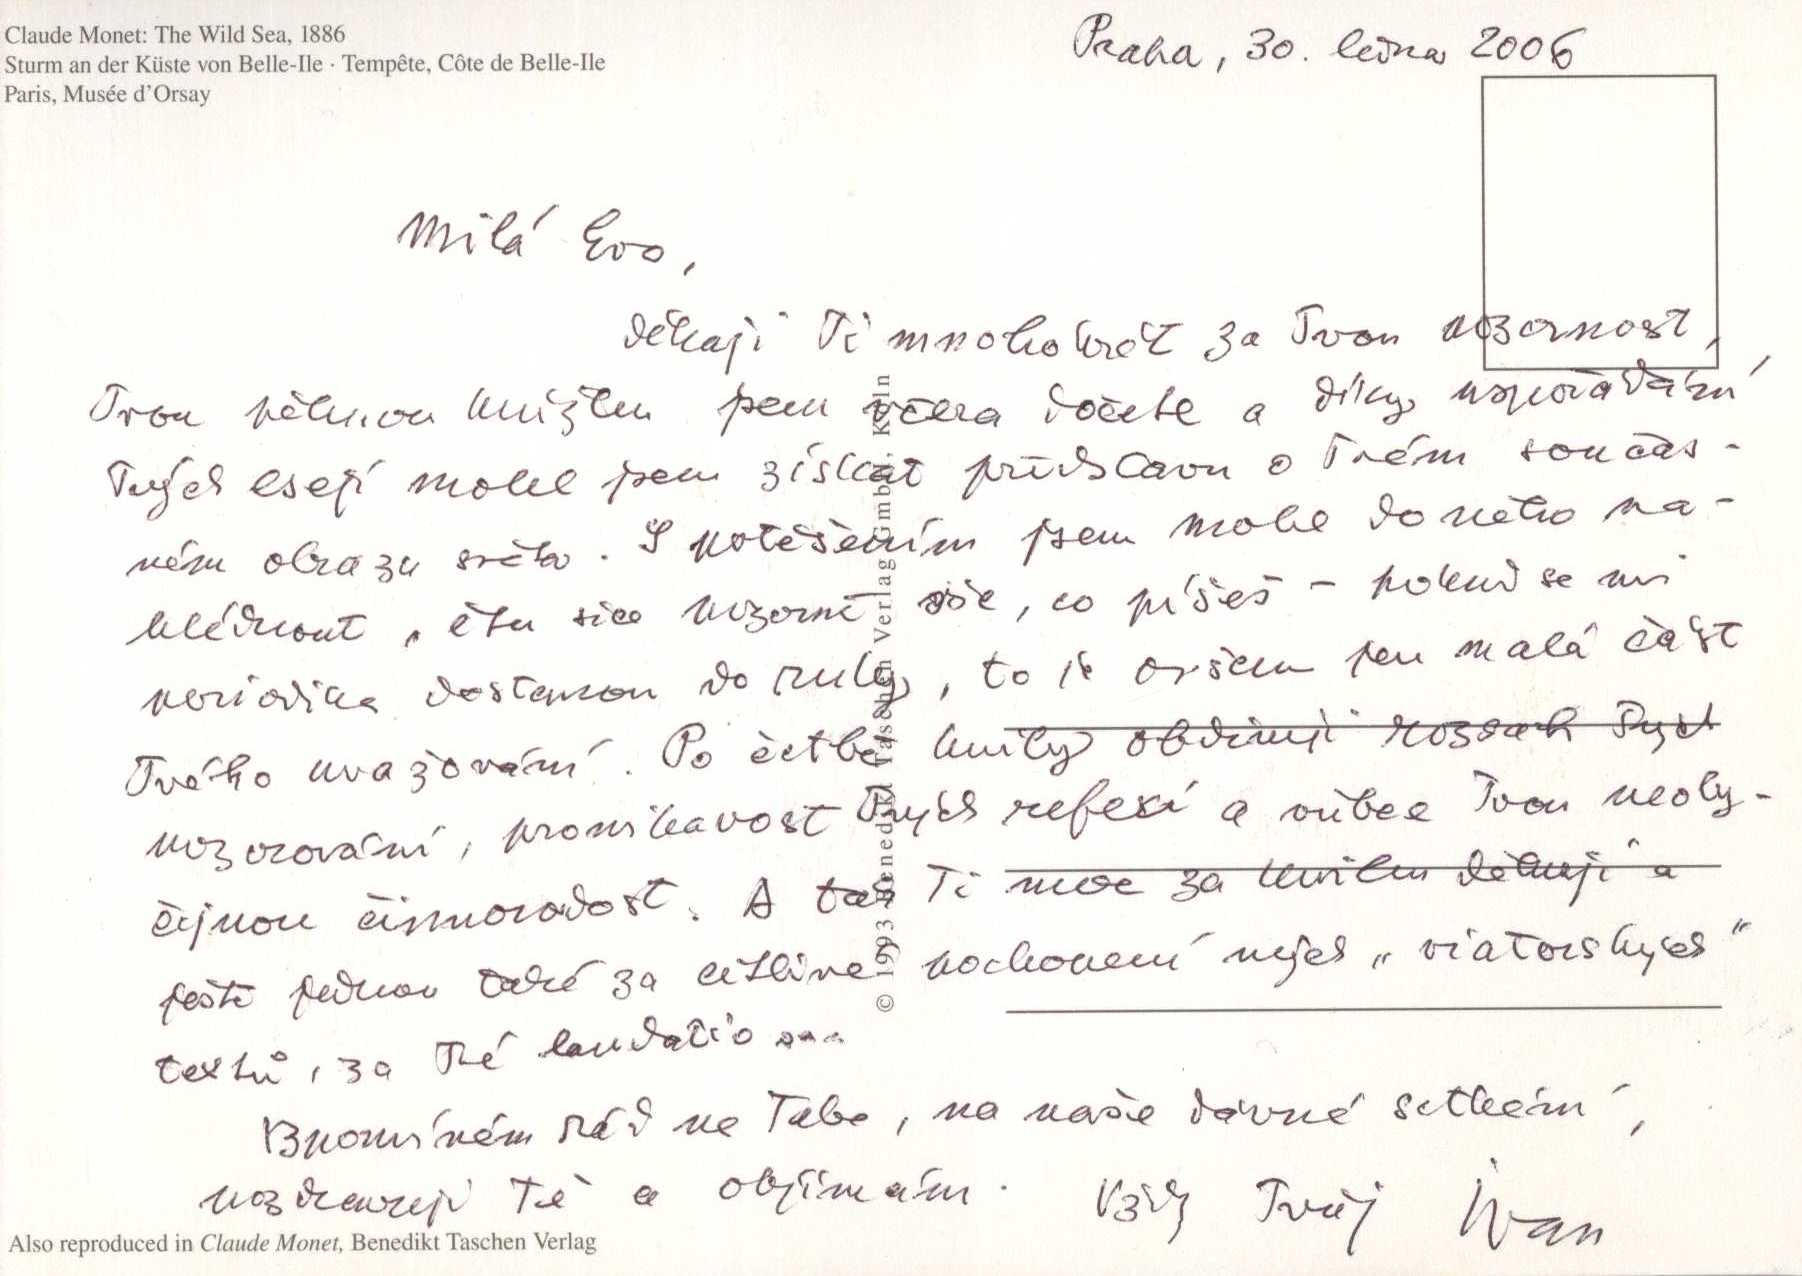 Claude Monet: The Wild Sea, 1886
Sturm an der Küste von Belle-Ile · Tempête, Côte de Belle-Ile
Paris, Musée d'Orsay
Praha, 30. ledna 2006
Milá Evo,
děkuji Ti mnohokrát za Tvou pozornost,
Tvou pěknou knížku jsem včera dočetl a díky uspořádání
Tvých esejí mohl jsem získat představu o Tvém součas-
ném obrazu světa. S potěšením jsem mohl do něho na-
hlédnout, čtu sice pozorně vše, co píšeš – pokud se mi
periodika dostanou do ruky, to je ovšem jen malá část
Tvého uvažování. Po četbě knihy obdivuji rozsah Tvých
pozorování, pronikavost Tvých reflexí a vůbec Tvou neoby-
čejnou činorodost. A tak Ti moc za knihu děkuji a
ještě jednou také za citlivé pochopení mých „viatorských"
textů, za Tvé laudatio ...
Vzpomínám rád na Tebe, na naše dávné setkání,
pozdravuji Tě a objímám. Vždy Tvůj Ivan
© 1993 Benedikt Taschen Verlag GmbH, Köln
Also reproduced in Claude Monet, Benedikt Taschen Verlag